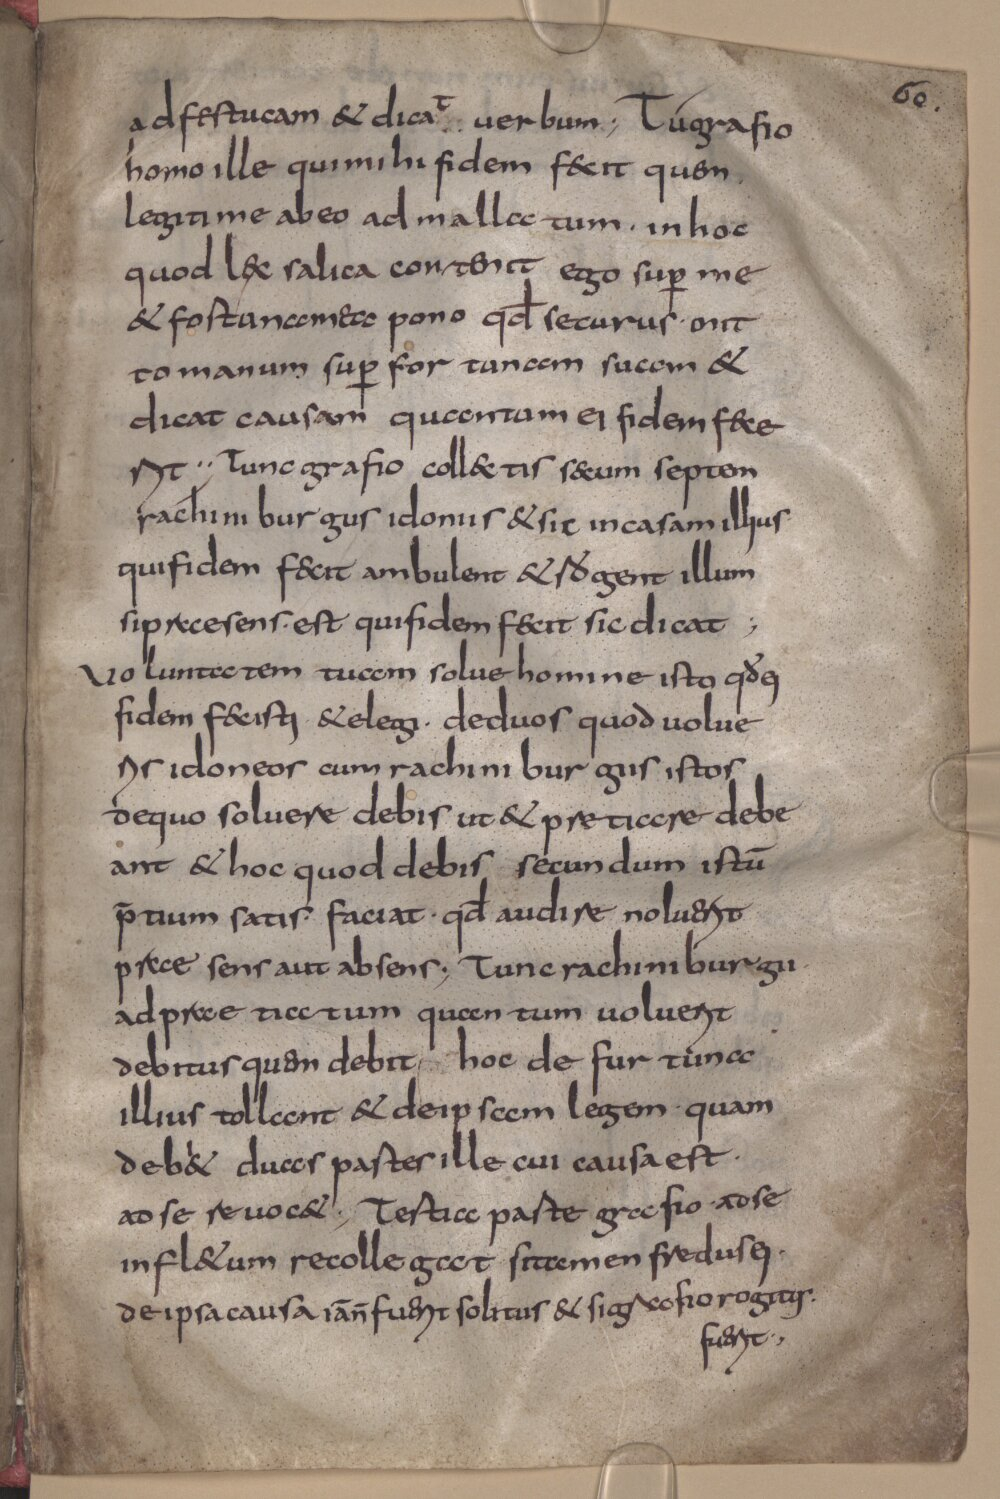 60.
ad festucam & dicat uerbum; Tu grafio
homo ille qui mihi fidem fecit quem
legitime abeo ad mallac tum. in hoc
quod lex salica contenit ego sup me
& fostuna mea pono qđ securus. mit
to manum sup for tunam suam &
dicat causam quantam ei fidem fece
rit; Tunc grafio collectis secum septem
rachin burgus idonius & sic in casam illius
qui fidem fecit ambulent & gent illum
si praesens. est qui fidem fecit sic dicat;
Voluntatem tuam solue homine isto qđ ei
fidem fecisti. & elegi. de duos quod uolue
ris idoneos cum rachini burgus istos
de quo soluere debis ut & pretiare debe
ant & hoc quod debis secundum istū
p̄tium satis faciat. qđ audire noluerit
prae sens aut absens; Tunc rachiniburgii
ad prae tia tum quan tum uoluerit
debitus quem debit hoc de fur tuna
illius tollant & de ipsam legem. quam
deb& duas pastes ille cui causa est.
ad se reuoc&; Testia paste grafio. ad se
in fl&um recollegat si tamen fredus ei.
de ipsa causa iāñ fuerit solitus & si grafio rogitus.
fuerit;